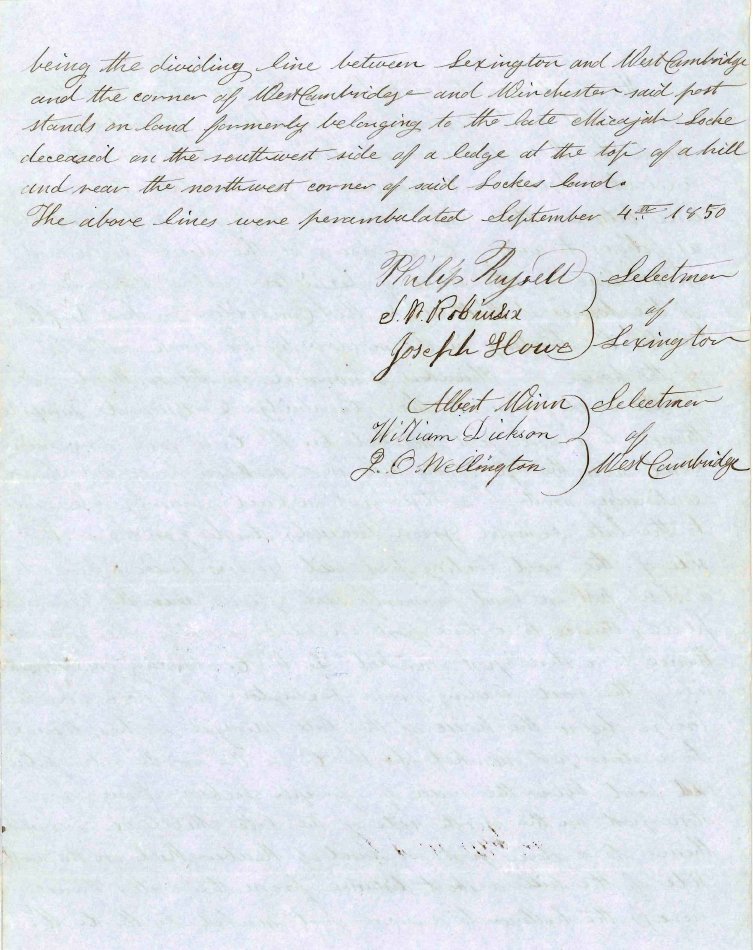 being the dividing line between Lexington and West Cambridge
and the corner of West Cambridge and Winchester said post
stands on land formerly belonging to the late Micajah Locke
deceased on the southwest side of a ledge at the top of a hill
and near the northwest corner of said Lockes land.
The above lines were perambulated September 4th 1850
Philip Russell } Selectmen
Robinson } of
Joseph Howe } Lexington
Albert Winn } Selectmen
William Dickson } of
J. O. Wellington } West Cambridge